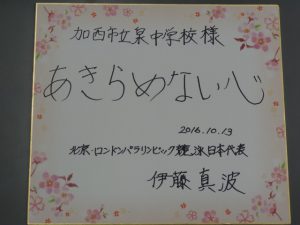 加西市立泉中学校様
あきらめない心
2016.10.13
北京・ロンドンパラリンピック競泳日本代表
伊藤真波